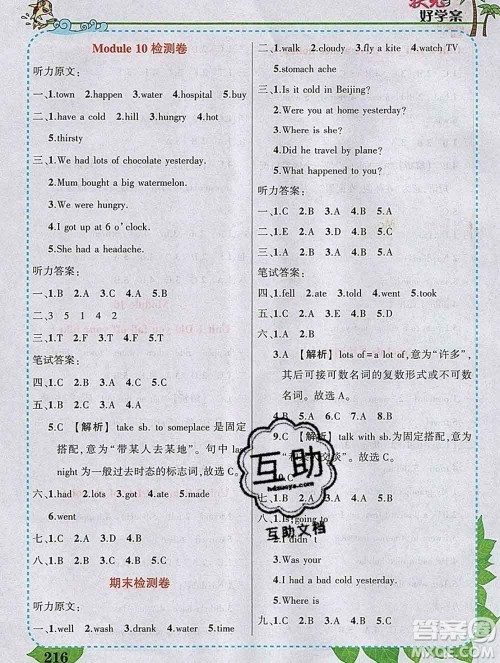 状元
好学案
Module 10 检测卷
听力原文：
一、1.town 2.happen 3.water 4.hospital 5.buy
二、1.have a cold 2.hill 3.hungry 4.hot
5.thirsty
三、1.We had lots of chocolate yesterday.
2.Mum bought a big watermelon.
3.We were hungry.
4.I got up at 6 o'clock.
5.She had a headache.
听力答案：
一、1.C 2.B 3.C 4.A 5.A
二、3 5 1 4 2
三、1.T 2.T 3.F 4.F 5.T
笔试答案：
四、1.C 2.C 3.D 4.B 5.A
五、1.B 2.A 3.C 4.B
5.C 【解析】take sb. to someplace 是固定
搭配，意为“带某人去某地”。句中 last
night 为一般过去时态的标志词，故选 C。
六、1.had 2.lots 3.got 4.ate 5.made
6.went
七、1.C 2.B 3.A 4.D
八、1.C 2.B 3.A 4.B 5.C
期末检测卷
听力原文：
一、1.well 2.wash 3.drank 4.water 5.night
二、1.walk 2.cloudy 3.fly a kite 4.watch TV
5.stomach ache
三、1.Is it cold in Beijing?
2.Were you at home yesterday?
3.Where is she?
4.Did he travel by plane?
5.What happened to you?
听力答案：
一、1.C 2.B 3.A 4.B 5.A
二、1.E 2.A 3.D 4.B 5.C
三、1.C 2.B 3.A 4.A 5.B
笔试答案：
四、1.fell 2.ate 3.told 4.went 5.took
六、1.B 2.A
3.A 【解析】lots of = a lot of，意为“许多”，
其后可接可数名词的复数形式或不可
数名词。故选 A。
4.A 5.C 6.B 7.B 8.A
9.C 【解析】talk with sb.为固定搭配，意为
“和某人交谈”。故选 C。
10.C
七、1.B 2.C 3.A 4.D 5.B
八、1.Is going to
2.I didn't
3.Was your
4.I had a bad cold yesterday.
5.Where is
九、1.C 2.B 3.C 4.C 5.A
互助
hdzuoye.com
互助文档
216
MXQE.COM